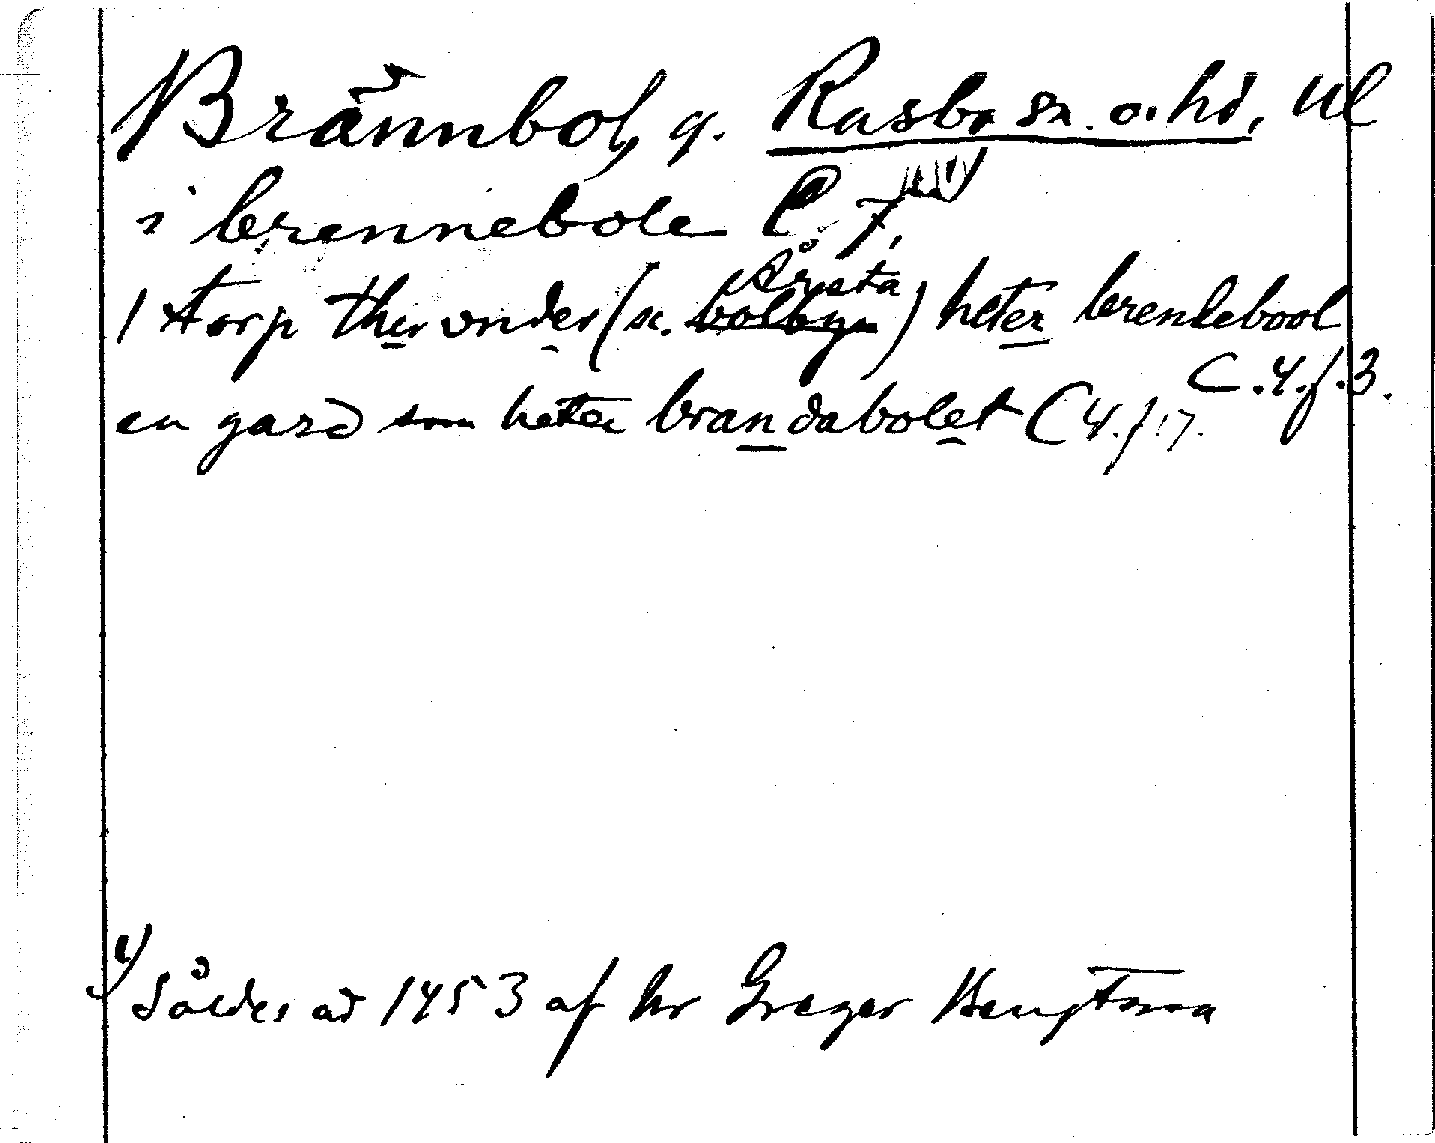 Brännbol, g. Rasbo sn. o. hd, Ul
i brennebole C 7,
Årsta
1 torp ther vnder (sc. bolbyn) heter brendebool
C. 4. f. 3.
en gard som heter brandabolet C 4. f. 17.
4) Såldes ad 1453 af hr Greger Bengtsson